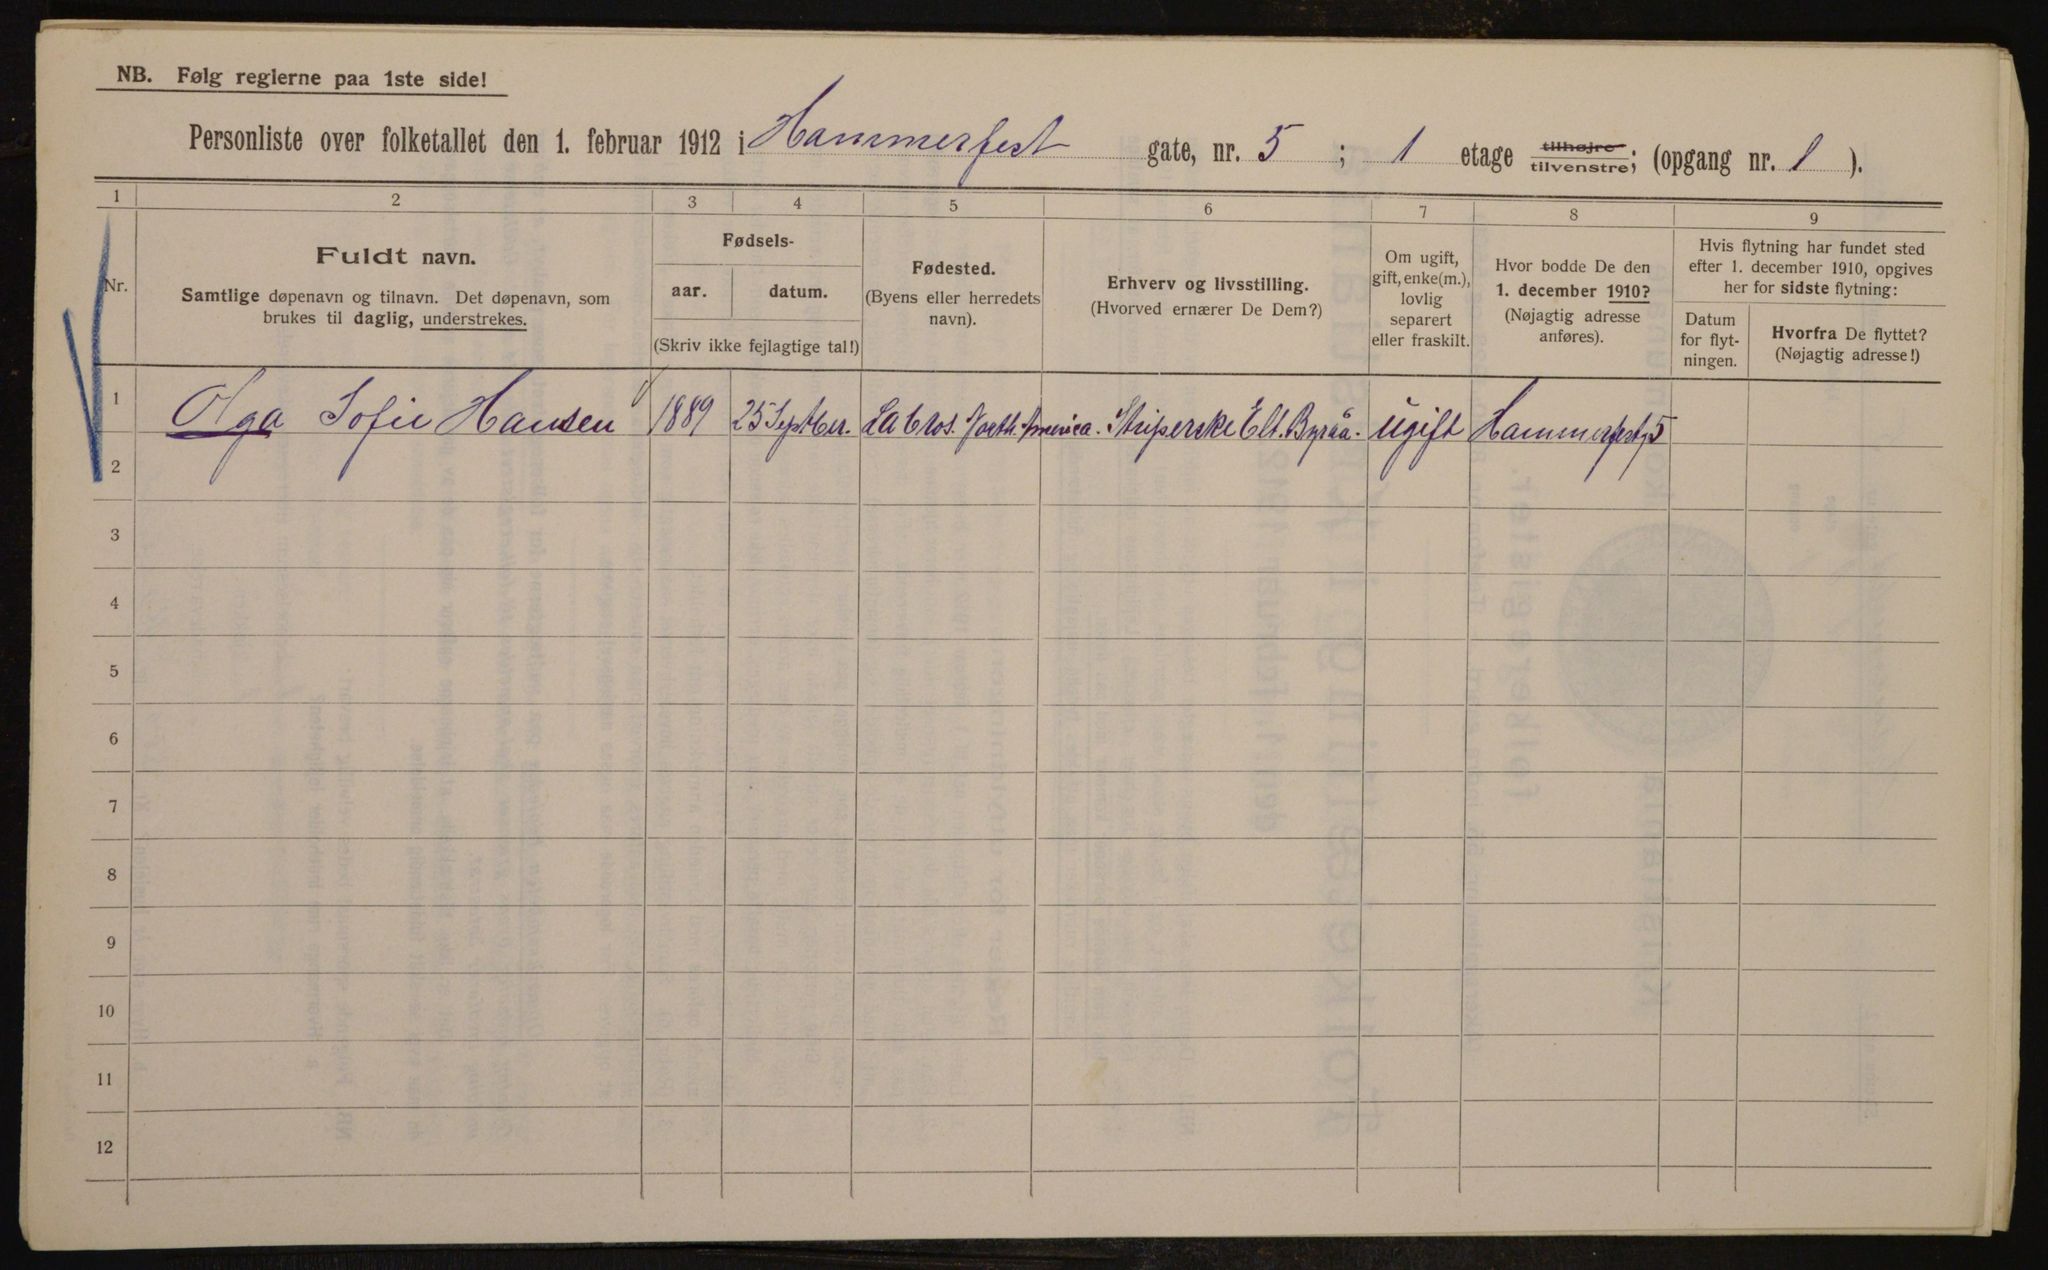 NB. Følg reglerne paa 1ste side!
Personliste over folketallet den 1. februar 1912 i Hammerfest gate, nr. 5 ; 1 etage tilhøjre tilvenstre; (opgang nr. 1 ).
1 2 3 4 5 6 7 8 9
Nr.
Fuldt navn.
Samtlige døpenavn og tilnavn. Det døpenavn, som
brukes til daglig, understrekes.
Fødsels-
aar. datum.
(Skriv ikke fejlagtige tal!)
Fødested.
(Byens eller herredets
navn).
Erhverv og livsstilling.
(Hvorved ernærer De Dem?)
Om ugift,
gift, enke(m.),
lovlig
separert
eller fraskilt.
Hvor bodde De den
1. december 1910?
(Nøjagtig adresse
anføres).
Hvis flytning har fundet sted
efter 1. december 1910, opgives
her for sidste flytning:
Datum
for flyt-
ningen.
Hvorfra De flyttet?
(Nøjagtig adresse!)
1 Olga Sofie Hansen 1889 25 Septber. La Cros. North. America. Elt. Byraa. ugift Hammerfestg 5
2
3
4
5
6
7
8
9
10
11
12